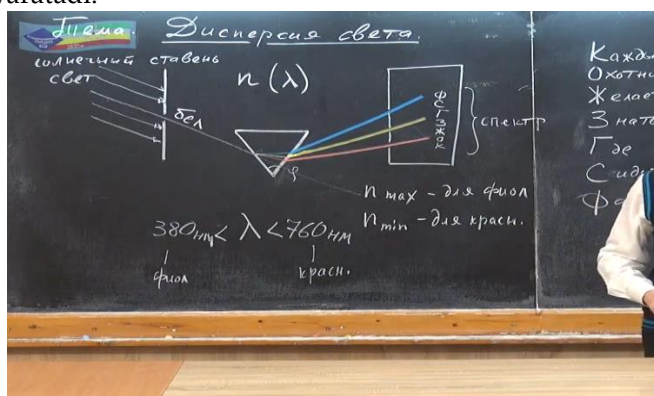 yaratadi.
Тема. Дисперсия света.
солнечный ставень
свет
n (λ)
бел
Ф
С
Г
З
Ж
О
К
спектр
φ
n max - для фиол
n min - для красн.
380нм < λ < 760нм
фиол красн.
Кажды
Охотни
Желае
Знать
Где
Сиди
Фа